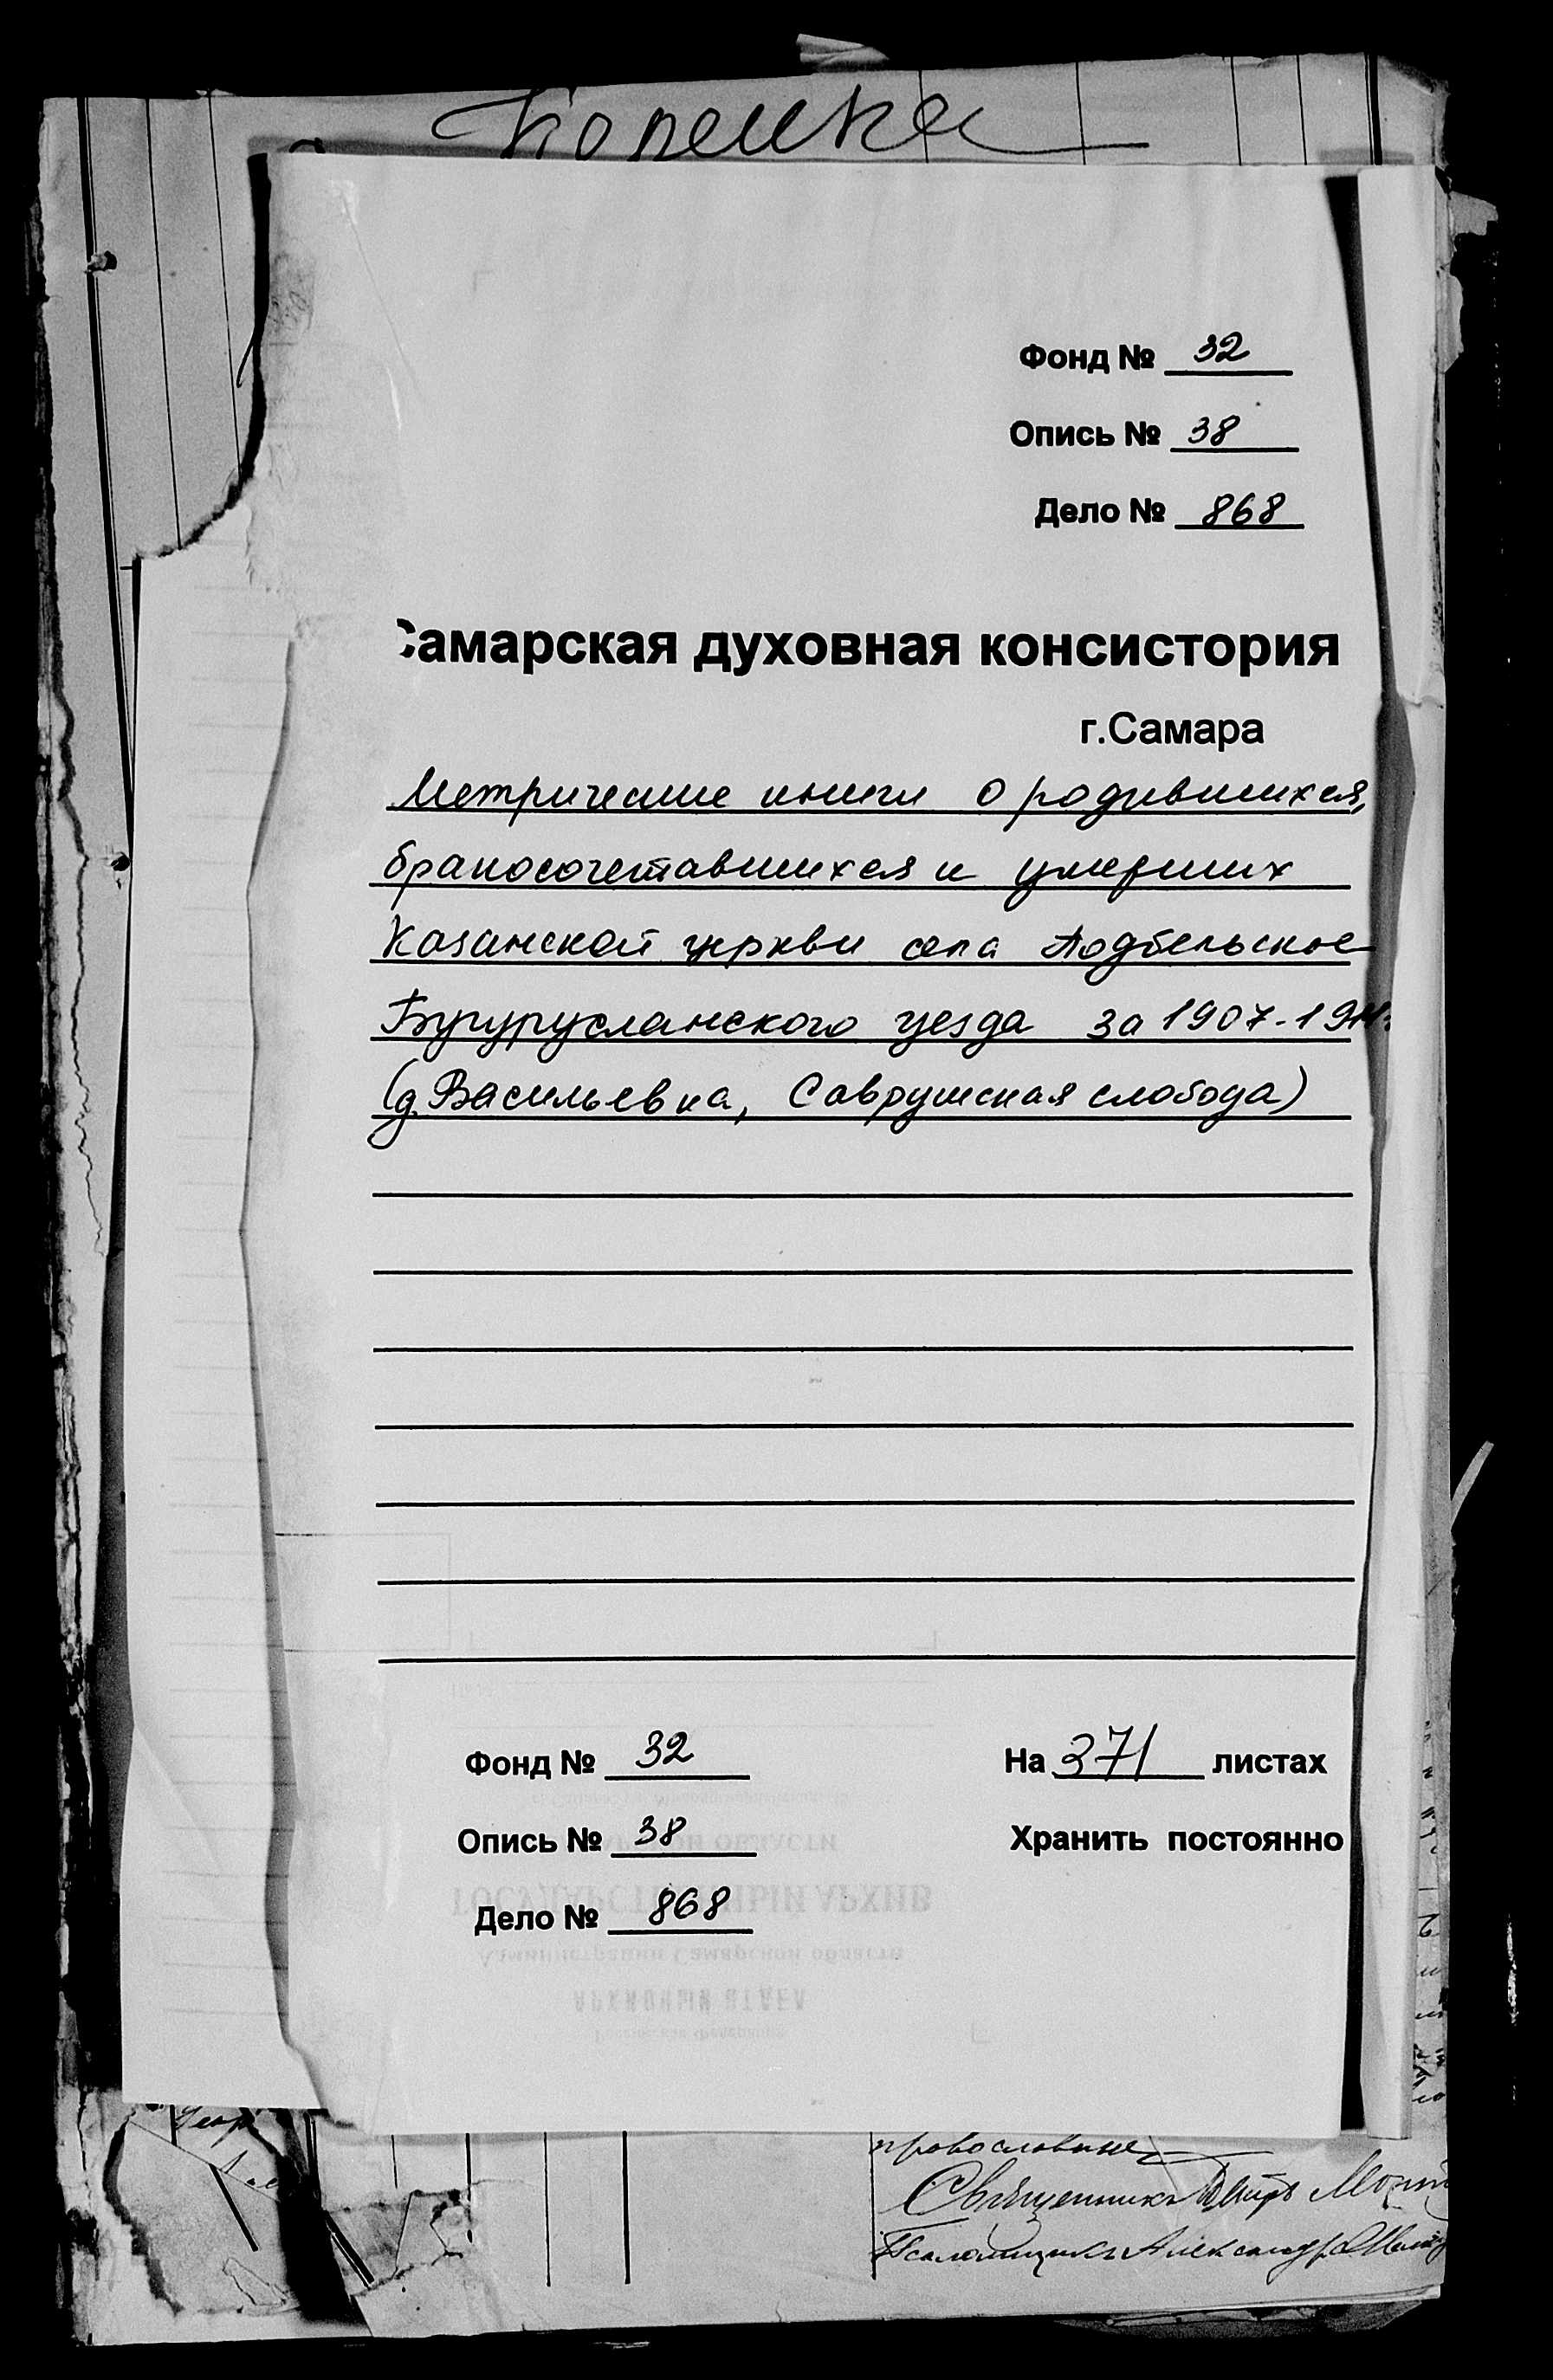 Копейка
Фонд № 32
Опись № 38
Дело № 868
Самарская духовная консистория
г.Самара
Метрические книги о родившихся,
бракосочетавшихся и умерших
Казанской церкви села Подбельское
Бугурусланского уезда за 1907-1911г.
(д.Васильевка, Саврушская слобода)
Фонд № 32
На 371 листах
Опись № 38
Хранить постоянно
Дело № 868
православные
Священникъ
Псаломщикъ Александръ